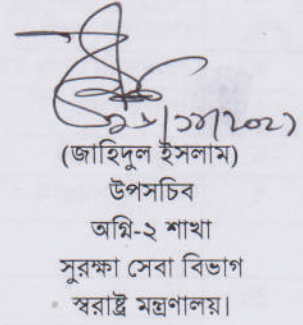 (জাহিদুল ইসলাম)
উপসচিব
অগ্নি-২ শাখা
সুরক্ষা সেবা বিভাগ
স্বরাষ্ট্র মন্ত্রণালয়।